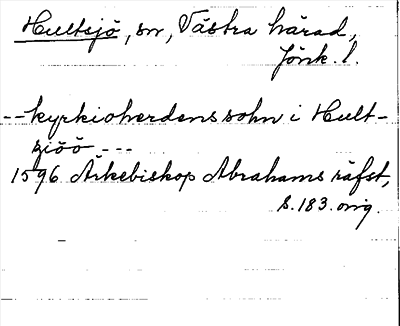 Hultsjö, sn, Västra härad,
Jönk. l.
-- kyrkioherdens sohn i Hult-
ziöö ---
1596 Ärkebiskop Abrahams räfst,
s. 183. orig.